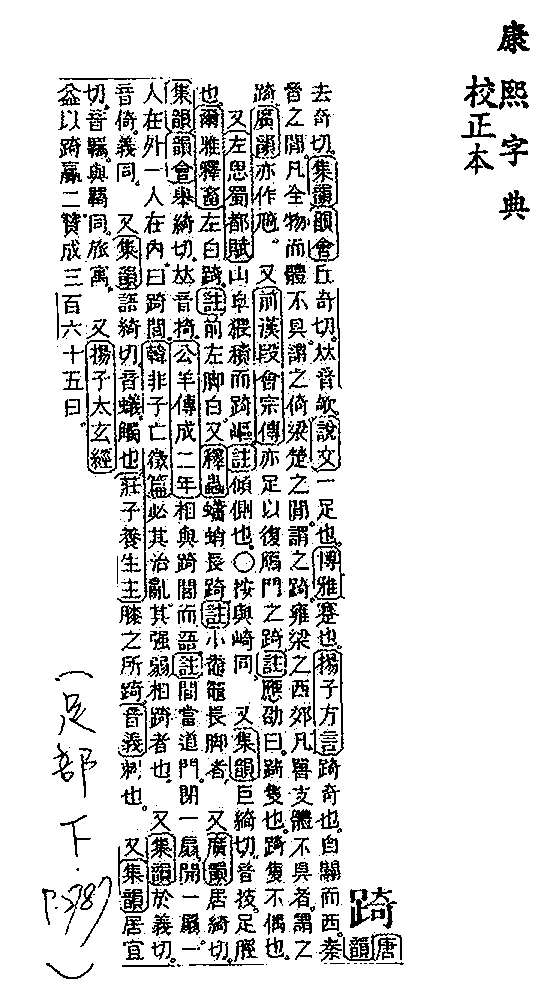 康熙字典
校正本
踦
唐韻
去奇切。集韻韻會丘奇切。𠀤音欹。說文一足也。博雅蹇也。揚子方言踦奇也。自關而西秦
晉之閒凡全物而體不具謂之倚梁楚之閒謂之踦雍梁之西郊凡嘼支體不具者謂之
踦廣韻亦作𨀁。又前漢段會宗傳亦足以復鴈門之踦註應劭曰踦隻也踦隻不偶也。
又左思蜀都賦山阜猥積而踦嶇註傾側也〇按與崎同。又集韻巨綺切音技足脛
也。爾雅釋畜左白踦註前左脚白又釋蟲蠨蛸長踦註小鼅鼄長脚者。又廣韻居綺切
集韻韻會舉綺切𠀤音掎。公羊傳成二年相與踦閭而語註閭當道門。閉一扇開一扇一
人在外一人在內曰踦閭韓非子亡徵篇必其治亂其强弱相踦者也。又集韻於義切
音倚。義同。又集韻語綺切音蟻觸也莊子養生主膝之所踦音義刺也。又集韻居宜
切音羈與羇同旅寓。又揚子太玄經
益以踦贏二贊成三百六十五日。
(足部 下.